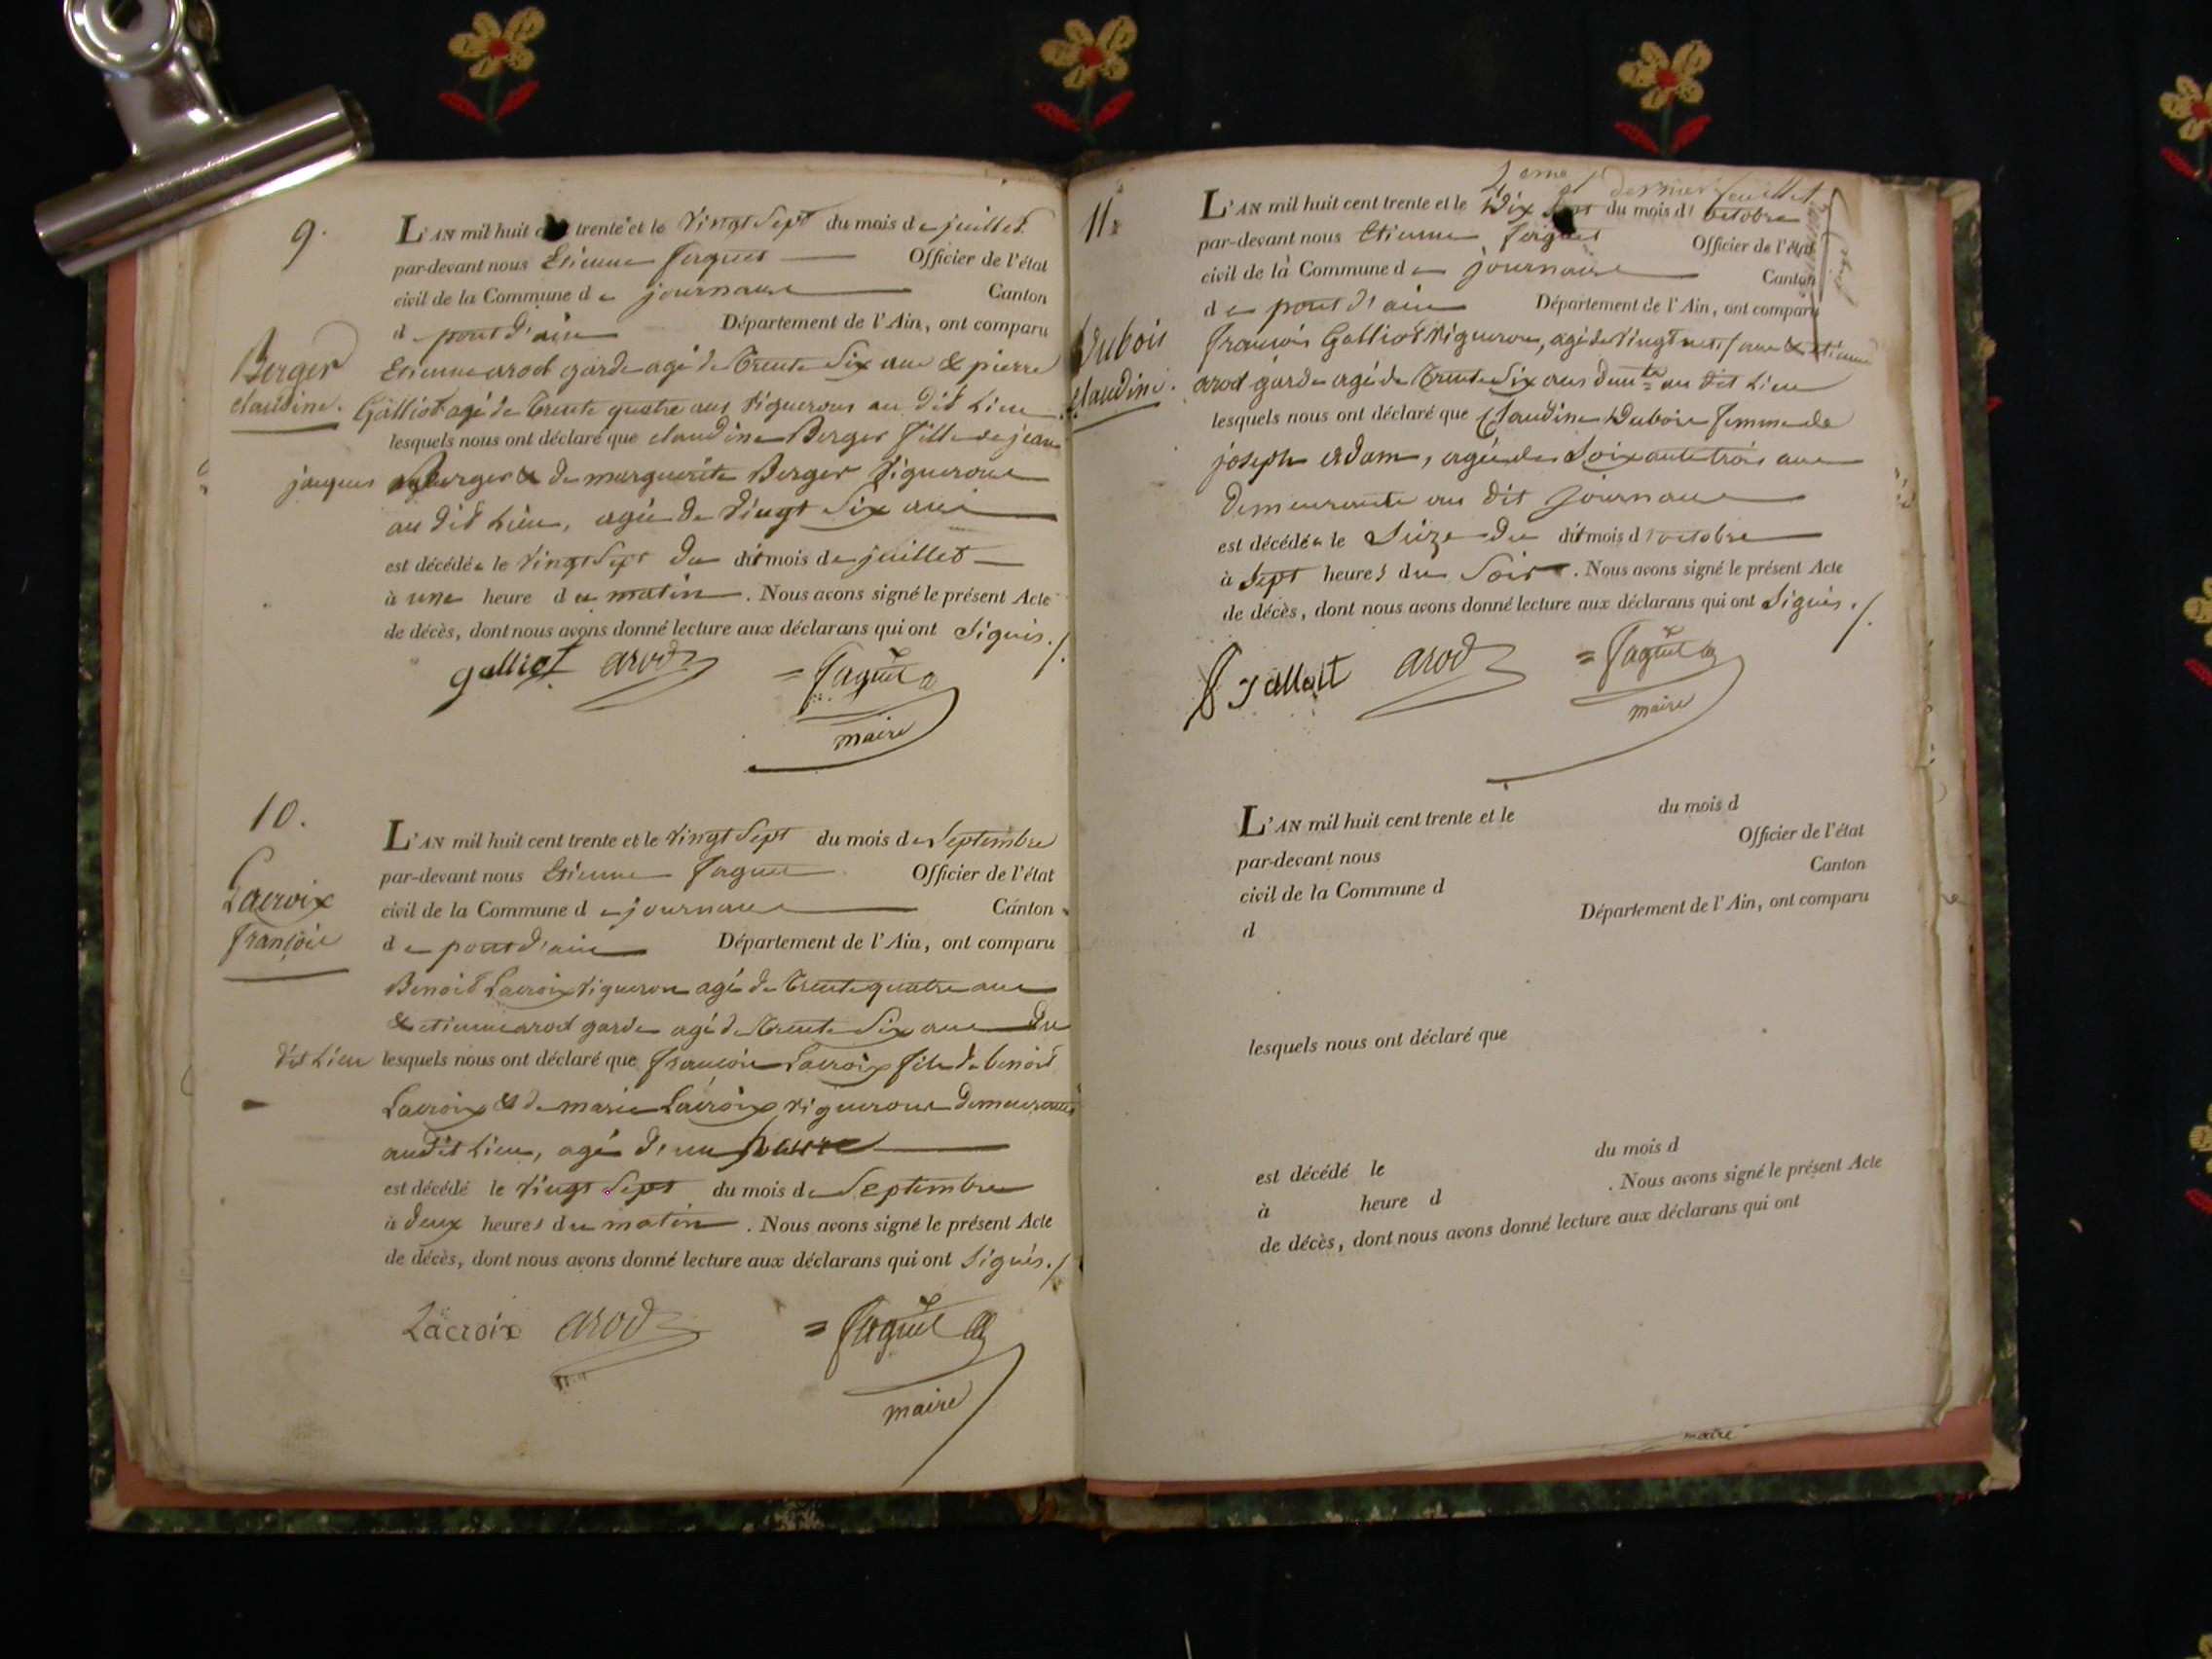 9.
L'AN mil huit cent trente et le vingt Sept du mois de juillet
par-devant nous Etienne faguet Officier de l'état
civil de la Commune de journans Canton
de pont d'ain Département de l'Ain, ont comparu
Berger
claudine.
Etienne arod garde agé de trente Six ans & pierre
Galliot agé de trente quatre ans vignerons au dit Lieu
lesquels nous ont déclaré que claudine Berger fille de jean
jacques Berger & de marguerite Berger vignerons
au dit Lieu, agée de vingt Six ans
est décédée le vingt Sept du dit mois de juillet
à une heure du matin. Nous avons signé le présent Acte
de décès, dont nous avons donné lecture aux déclarans qui ont Signés./.
galliot arod = faguet
maire
10.
Lacroix
françois
L'AN mil huit cent trente et le vingt Sept du mois de Septembre
par-devant nous Etienne faguet Officier de l'état
civil de la Commune de journans Canton
de pont d'ain Département de l'Ain, ont comparu
Benoit Lacroix vigneron agé de trente quatre ans
& etienne arod garde agé de trente Six ans du
dit Lieu lesquels nous ont déclaré que françois Lacroix fils de benoit
Lacroix & de marie Lacroix vignerons demeurants
audit Lieu, agé d'un
est décédé le vingt Sept du mois de Septembre
à deux heures du matin. Nous avons signé le présent Acte
de décès, dont nous avons donné lecture aux déclarans qui ont Signés./
Lacroix arod = faguet
maire
2eme et dernier feuillet
11.
L'AN mil huit cent trente et le Dix Sept du mois d'octobre
par-devant nous Etienne faguet Officier de l'état
civil de la Commune de journans Canton
de pont d'ain Département de l'Ain, ont comparu
Dubois
claudine.
françois Galliot vigneron, agé de vingt neuf ans & etienne
arod garde agé de trente Six ans au dit Lieu
lesquels nous ont déclaré que Claudine Dubois femme de
joseph adam, agée de Soixante trois ans
demeurante au dit journans
est décédée le Seize du dit mois d'octobre
à Sept heures du Soir. Nous avons signé le présent Acte
de décès, dont nous avons donné lecture aux déclarans qui ont Signés./.
f galloit arod = faguet
maire
L'AN mil huit cent trente et le du mois d
par-devant nous Officier de l'état
civil de la Commune d Canton
d Département de l'Ain, ont comparu
lesquels nous ont déclaré que
est décédé le du mois d
à heure d . Nous avons signé le présent Acte
de décès, dont nous avons donné lecture aux déclarans qui ont
maire